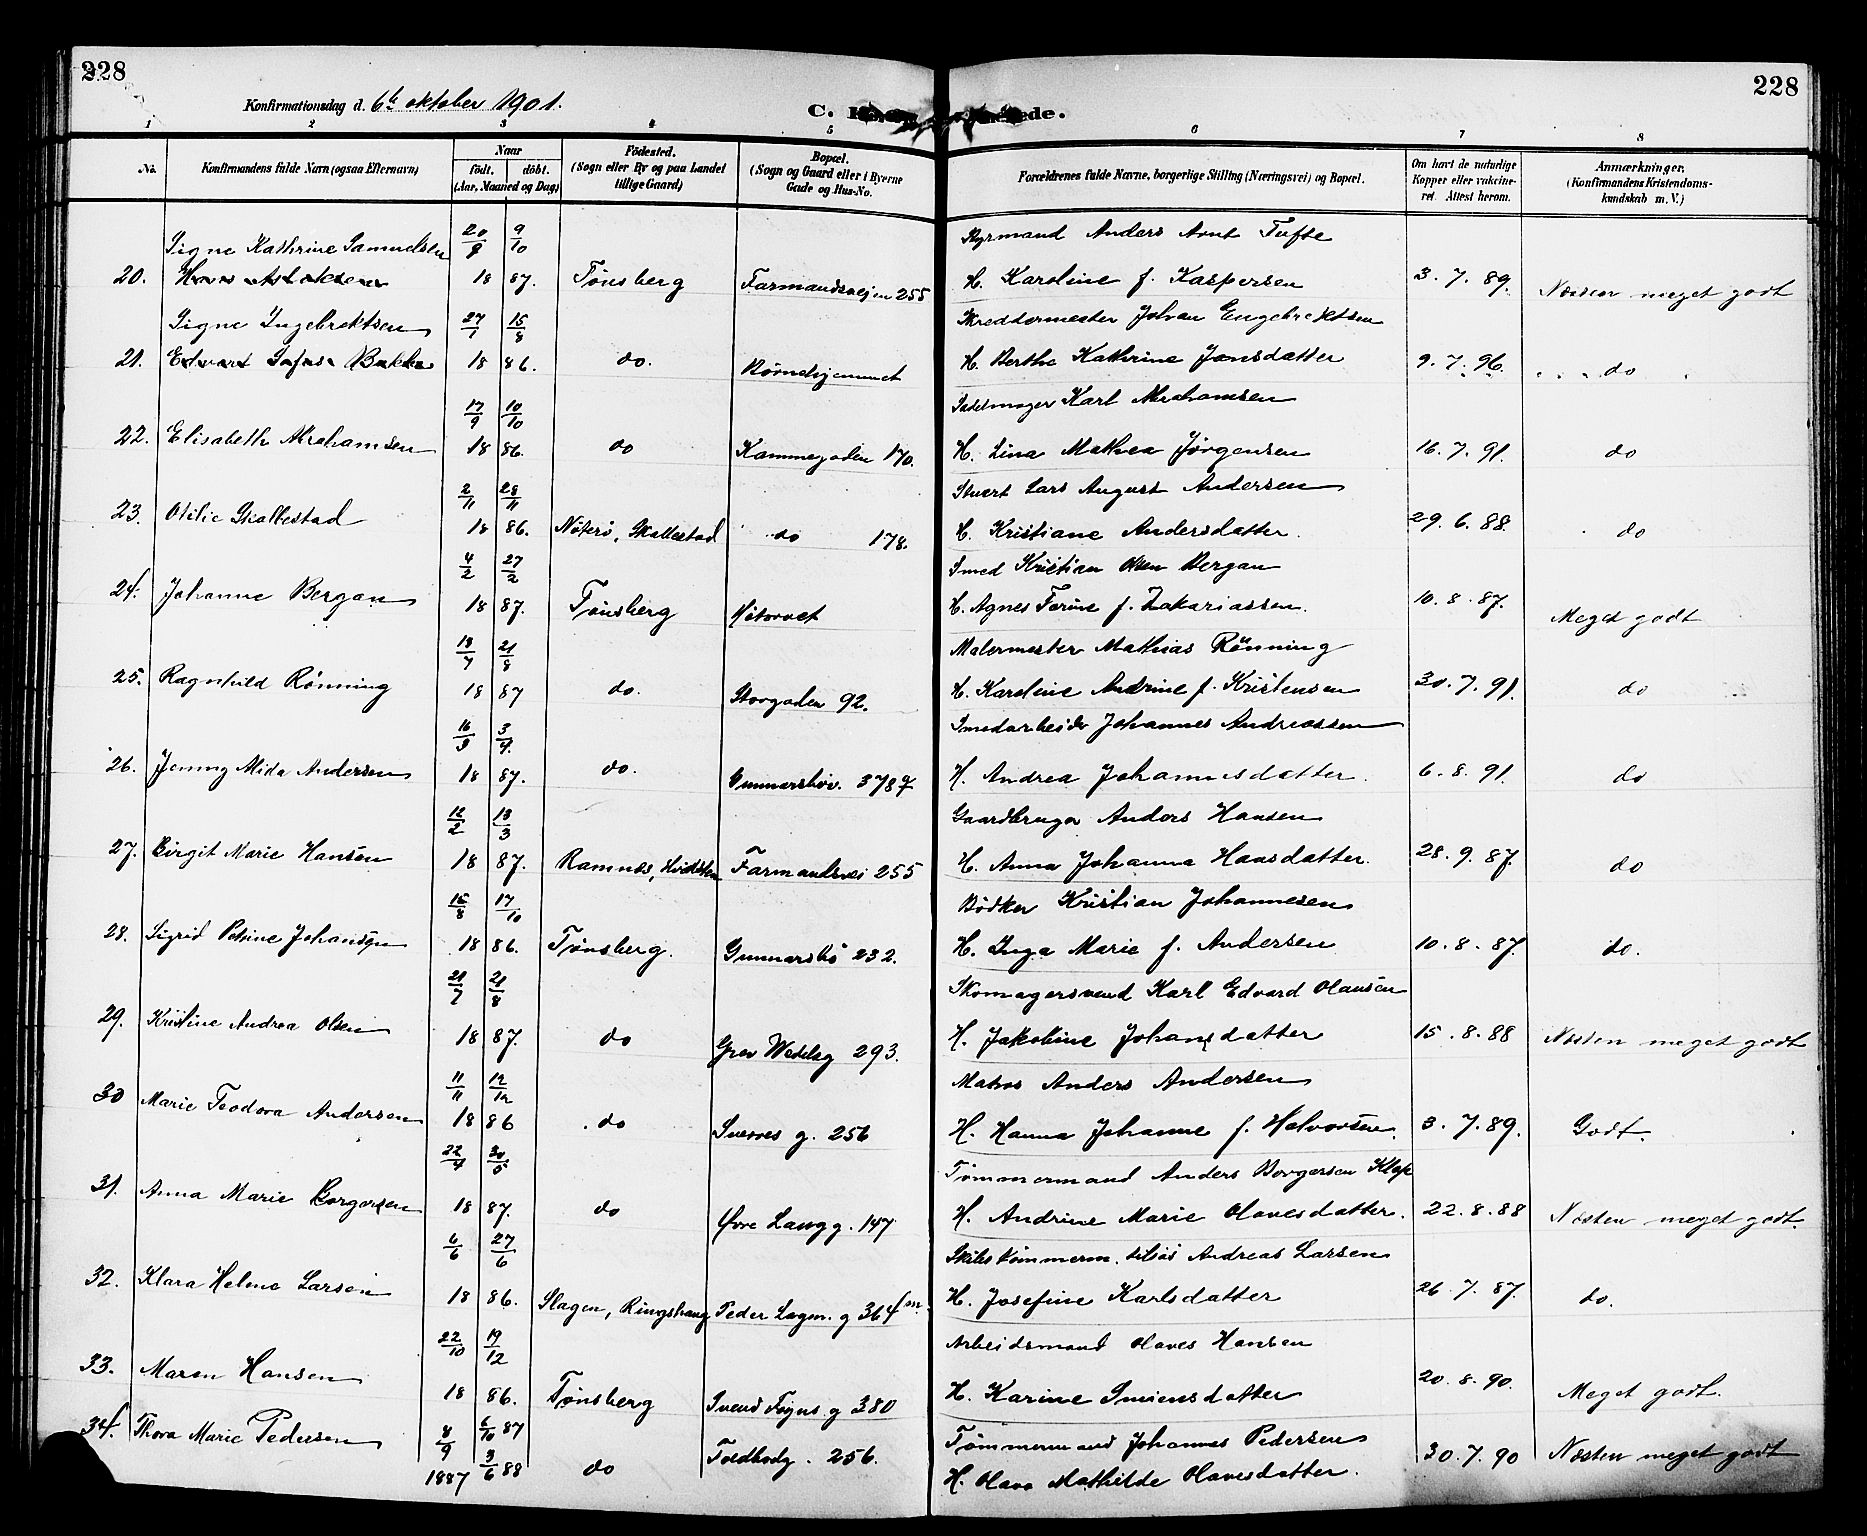 228
228
Konfirmationsdag d. 6te oktober 1901.
C.
1 2 3 4 5 6 7 8
No. Konfirmandens fulde Navn (ogsaa Efternavn) Naar født, døbt. (Aar, Maaned og Dag) Fødested. (Sogn eller By og paa Landet tillige Gaard) Bopæl. (Sogn og Gaard eller i Byerne Gade og Hus-No. Forældrenes fulde Navne, borgerlige Stilling (Næringsvei) og Bopæl. Om havt de naturlige Kopper eller vakcineret. Attest herom. Anmærkninger. (Konfirmandens Kristendomskundskab m. V.)
Signe Kathrine Samuelsen 20/9 9/10 Anders Arnt Tufte
20. 18 87. Tønsberg Farmandsvejen 255 H. Karoline f. Kaspersen 3.7.89. Næsten meget godt
Signe Ingebrektsen 27/1 15/8 Skreddermester Johan Engebrektsen
21. 18 86. do. Børnehjemmet H. Berthe Kathrine Jonsdatter 9.7.96. do
17/9 10/10 Sadelmager Karl Abrahamsen
22. Elisabeth Abrahamsen 18 86. do Kammegaden 170. H. Lina Mathea Jørgensen 16.7.91. do
2/11 28/11 Stuert Lars August Andersen
23. Otilie Skallestad 18 86. Nøterø, Skallestad do 178. H. Kristiane Andersdatter. 29.6.88. do
4/2 27/2 Smed Kristian Olsen Bergan
24. Johanne Bergan 18 87. Tønsberg Høtorvet H. Agnes Torine f. Zakariassen. 10.8.87. Meget godt
13/7 21/8 Malermester Mathias Rønning
25. Ragnhild Rønning 18 87 do. Storgaden 92. H. Karoline Andrine f. Kristensen 30.7.91. do
16/3 3/4. Smedarbeider Johannes Andreassen
26. Jenny Alida Andersen 18 87. do. Gunnarsbøv. 378 H. Andrea Johannesdatter. 6.8.91. do
12/2 13/3 Gaardbruger Anders Hansen
27. Birgit Marie Hansen 18 87. Ramnes, Farmandsvei 255 H. Anna Johanna Hansdatter. 28.9.87. do
15/8 17/10 Bødker Kristian Johannesen
28. Sigrid Petrine Johansen 18 86. Tønsberg. Gunnarsbø 232. H. Inga Marie f. Andersen 10.8.87. do.
21/7 21/8 Skomagersvend Karl Edvard Olausen
29. Kristine Andrea Olsen 18 87. do Grev Wedelsg 293. H. Jakobine Johansdatter 15.8.88 Næsten meget godt
11/11 12/12 Matros Anders Andersen
30 Marie Teodora Andersen 18 86 do Sverres g. 256 H. Hanna Johanne f. Halvorsen. 3.7.89. Godt.
22/4 30/5 Tømmermand Anders Borgersen Klop
31. Anna Marie Borgersen 18 87. do Øvre Langg. 147 H. Andrine Marie Olavesdatter. 22.8.88 Næsten meget godt.
6/6 27/6 Skibstømmerm. Andreas Larsen
32. Klara Helene Larsen 18 86. Slagen, Ringshaug Peder Lagm. g 364 m. H. Josefine Karlsdatter 26.7.87. do.
22/10 19/12 Arbeidsmand Olaves Hansen
33. Maren Hansen 18 86. Tønsberg Svend Foyns g 380 H. Karine Simensdatter 20.8.90. Meget godt.
34. Thora Marie Pedersen 8/9 6/10 87 Tømmermand Johannes Pedersen
1887 3/6 88 do Toldbodg. 256. H. Olava Mathilde Olavesdatter. 30.7.90 Næsten meget godt